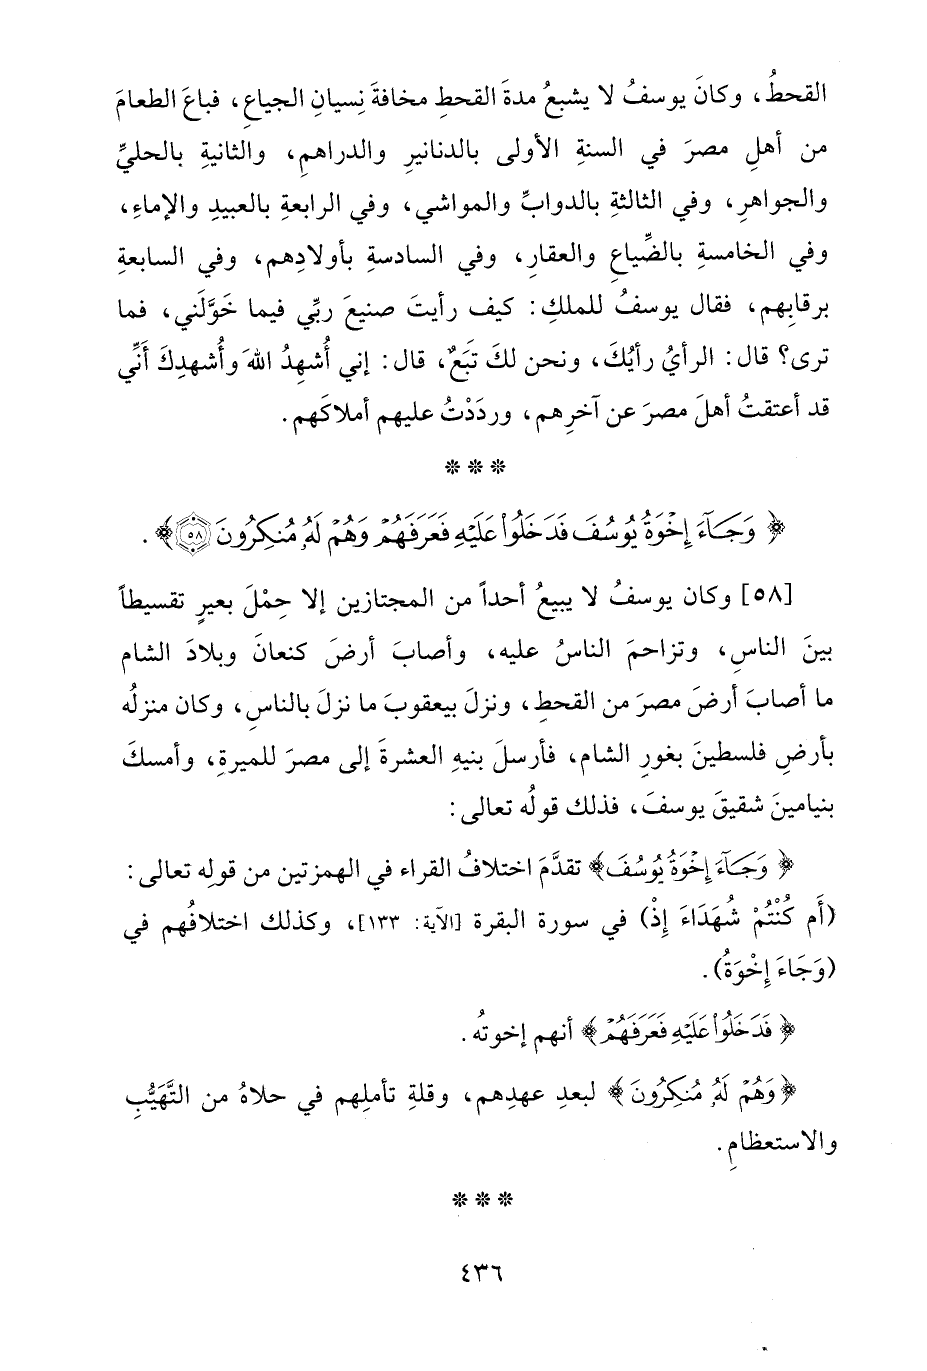 القحطُ، وكانَ يوسفُ لا يشبعُ مدةَ القحطِ مخافةَ نِسيانِ الجياعِ، فباعَ الطعامَ
من أهلِ مصرَ في السنةِ الأولى بالدنانيرِ والدراهمِ، والثانيةِ بالحليِّ
والجواهرِ، وفي الثالثةِ بالدوابِّ والمواشي، وفي الرابعةِ بالعبيدِ والإماءِ،
وفي الخامسةِ بالضِّياعِ والعقارِ، وفي السادسةِ بأولادِهم، وفي السابعةِ
برقابِهم، فقال يوسفُ للملكِ: كيف رأيتَ صنيعَ ربِّي فيما خَوَّلَني، فما
ترى؟ قال: الرأيُ رأيُكَ، ونحن لكَ تبَعٌ، قال: إني أُشهِدُ اللهَ وأُشهدِكَ أَنِّي
قد أعتقتُ أهلَ مصرَ عن آخرِهم، وردَدْتُ عليهم أملاكَهم.
* * *
﴿وَجَآءَ إِخۡوَةُ يُوسُفَ فَدَخَلُواْ عَلَيۡهِ فَعَرَفَهُمۡ وَهُمۡ لَهُۥ مُنكِرُونَ ٥٨﴾.
[٥٨] وكان يوسفُ لا يبيعُ أحداً من المجتازين إلا حِمْلَ بعيرٍ تقسيطاً
بينَ الناسِ، وتزاحمَ الناسُ عليه، وأصابَ أرضَ كنعانَ وبلادَ الشام
ما أصابَ أرضَ مصرَ من القحطِ، ونزلَ بيعقوبَ ما نزلَ بالناسِ، وكان منزلُه
بأرضِ فلسطينَ بغورِ الشام، فأرسلَ بنيهِ العشرةَ إلى مصرَ للميرةِ، وأمسكَ
بنيامينَ شقيقَ يوسفَ، فذلك قولُه تعالى:
﴿وَجَآءَ إِخۡوَةُ يُوسُفَ﴾ تقدَّمَ اختلافُ القراء في الهمزتين من قولِه تعالى:
(أَم كُنْتُمْ شُهَدَاءَ إِذْ) في سورة البقرة [الآية: ١٣٣]، وكذلك اختلافُهم في
(وَجَاءَ إِخْوَةُ).
﴿فَدَخَلُواْ عَلَيۡهِ فَعَرَفَهُمۡ﴾ أنهم إخوتُه.
﴿وَهُمۡ لَهُۥ مُنكِرُونَ﴾ لبعدِ عهدِهم، وقلةِ تأملِهم في حلاهُ من التَّهَيُّبِ
والاستعظامِ.
* * *
٤٣٦